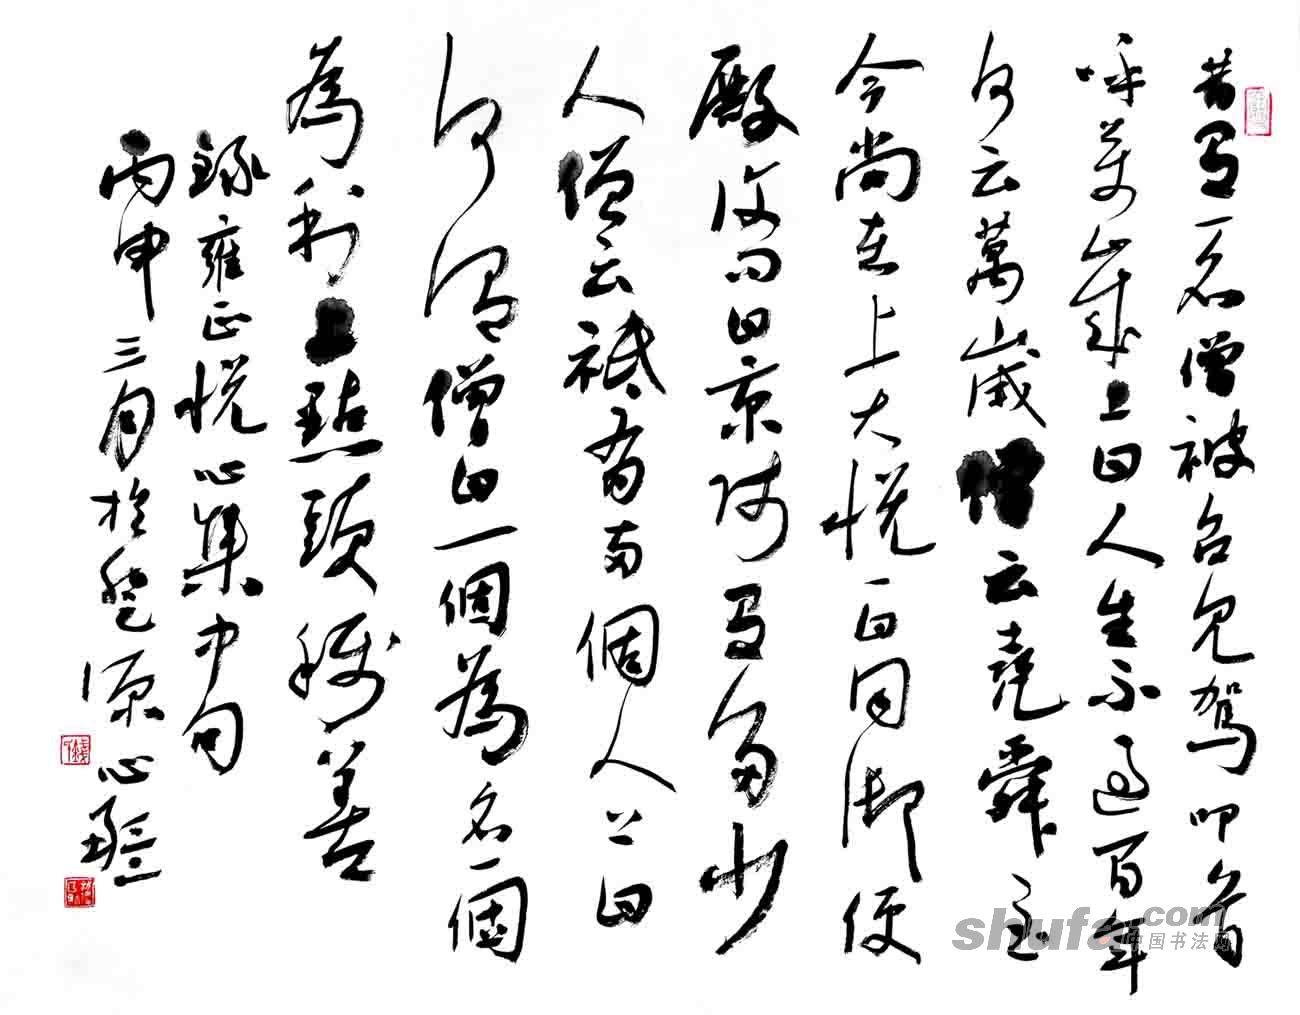 昔有一名僧被召見駕叩首
呼萬歲上曰人生不過百年
何云萬歲僧云堯舜至
今尚在上大悅一日同御便
殿復問曰京師有多少
人僧云祗有兩個人上曰
何謂僧曰一個為名一個
為利上點頭稱善
錄雍正悅心集中句
丙申三月於楚源心
shufa.com
中国书法网